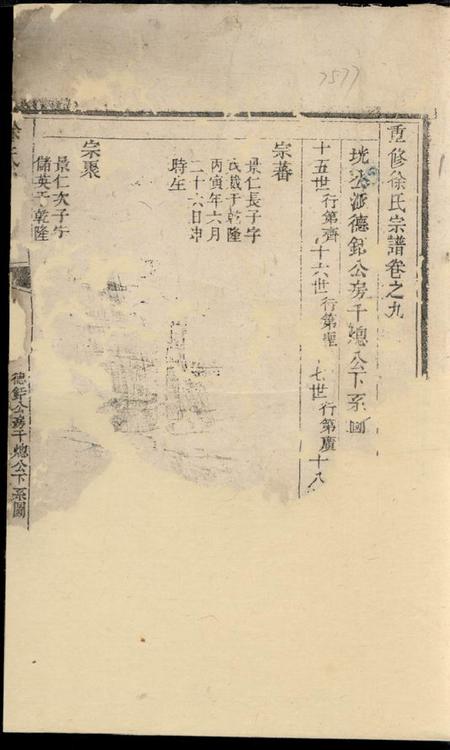 7577
重修徐氏宗譜卷之九
珖公派德釲公房千總公下系圖
十五世行第齊 十六世行第聖 七世行第廣 十八
宗蕃
景仁長子字
戴于乾隆
丙寅年六月
二十六日申
時生
宗聚
景仁次子字
儲英于乾隆
德釲公房千總公下系圖